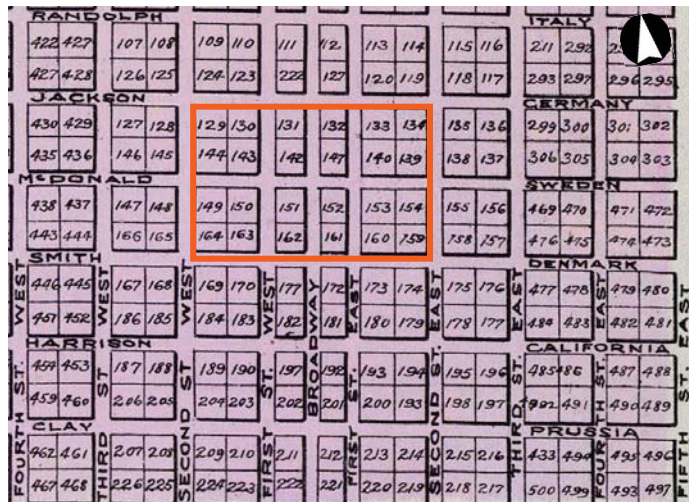 RANDOLPH ITALY
422 427 107 108 109 110 111 112 113 114 115 116 211 292
427 428 126 125 124 123 222 127 120 119 118 117 293 297 296 295
JACKSON GERMANY
430 429 127 128 129 130 131 132 133 134 135 136 299 300 301 302
435 436 146 145 144 143 142 147 140 139 138 137 306 305 304 303
McDONALD SWEDEN
438 437 147 148 149 150 151 152 153 154 155 156 469 470 471 472
443 444 166 165 164 163 162 161 160 159 158 157 476 475 474 473
SMITH DENMARK
446 445 167 168 169 170 177 172 173 174 175 176 477 478 479 480
451 452 186 185 184 183 182 181 180 179 178 177 484 483 482 481
HARRISON CALIFORNIA
454 453 187 188 189 190 197 192 193 194 195 196 485 486 487 488
459 460 206 205 204 203 202 201 200 193 198 197 492 491 490 489
CLAY PRUSSIA
462 461 207 208 209 210 211 212 213 214 215 216 433 494 495 496
467 468 226 225 224 223 222 221 220 219 218 217 500 499 493 497
WEST FOURTH ST.
WEST THIRD ST
WEST SECOND ST
WEST FIRST ST.
BROADWAY
EAST FIRST ST.
EAST SECOND ST.
EAST THIRD ST.
EAST FOURTH ST.
EAST FIFTH ST.